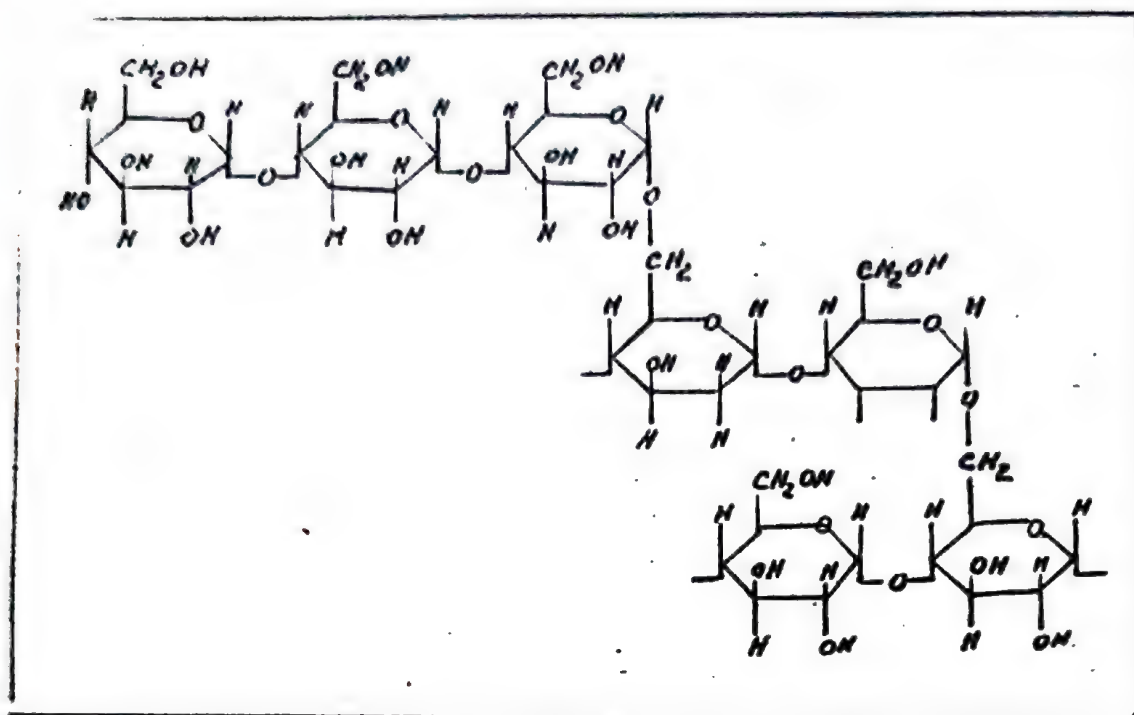 CH₂OH CH₂OH CH₂OH
H O H H O H H O H
OH H OH H OH H
HO O O O
H OH H OH H OH
CH₂ CH₂OH
H O H H O H
OH H O O
H H
CH₂OH CH₂
H O H H O H
OH H O OH H
H OH H OH